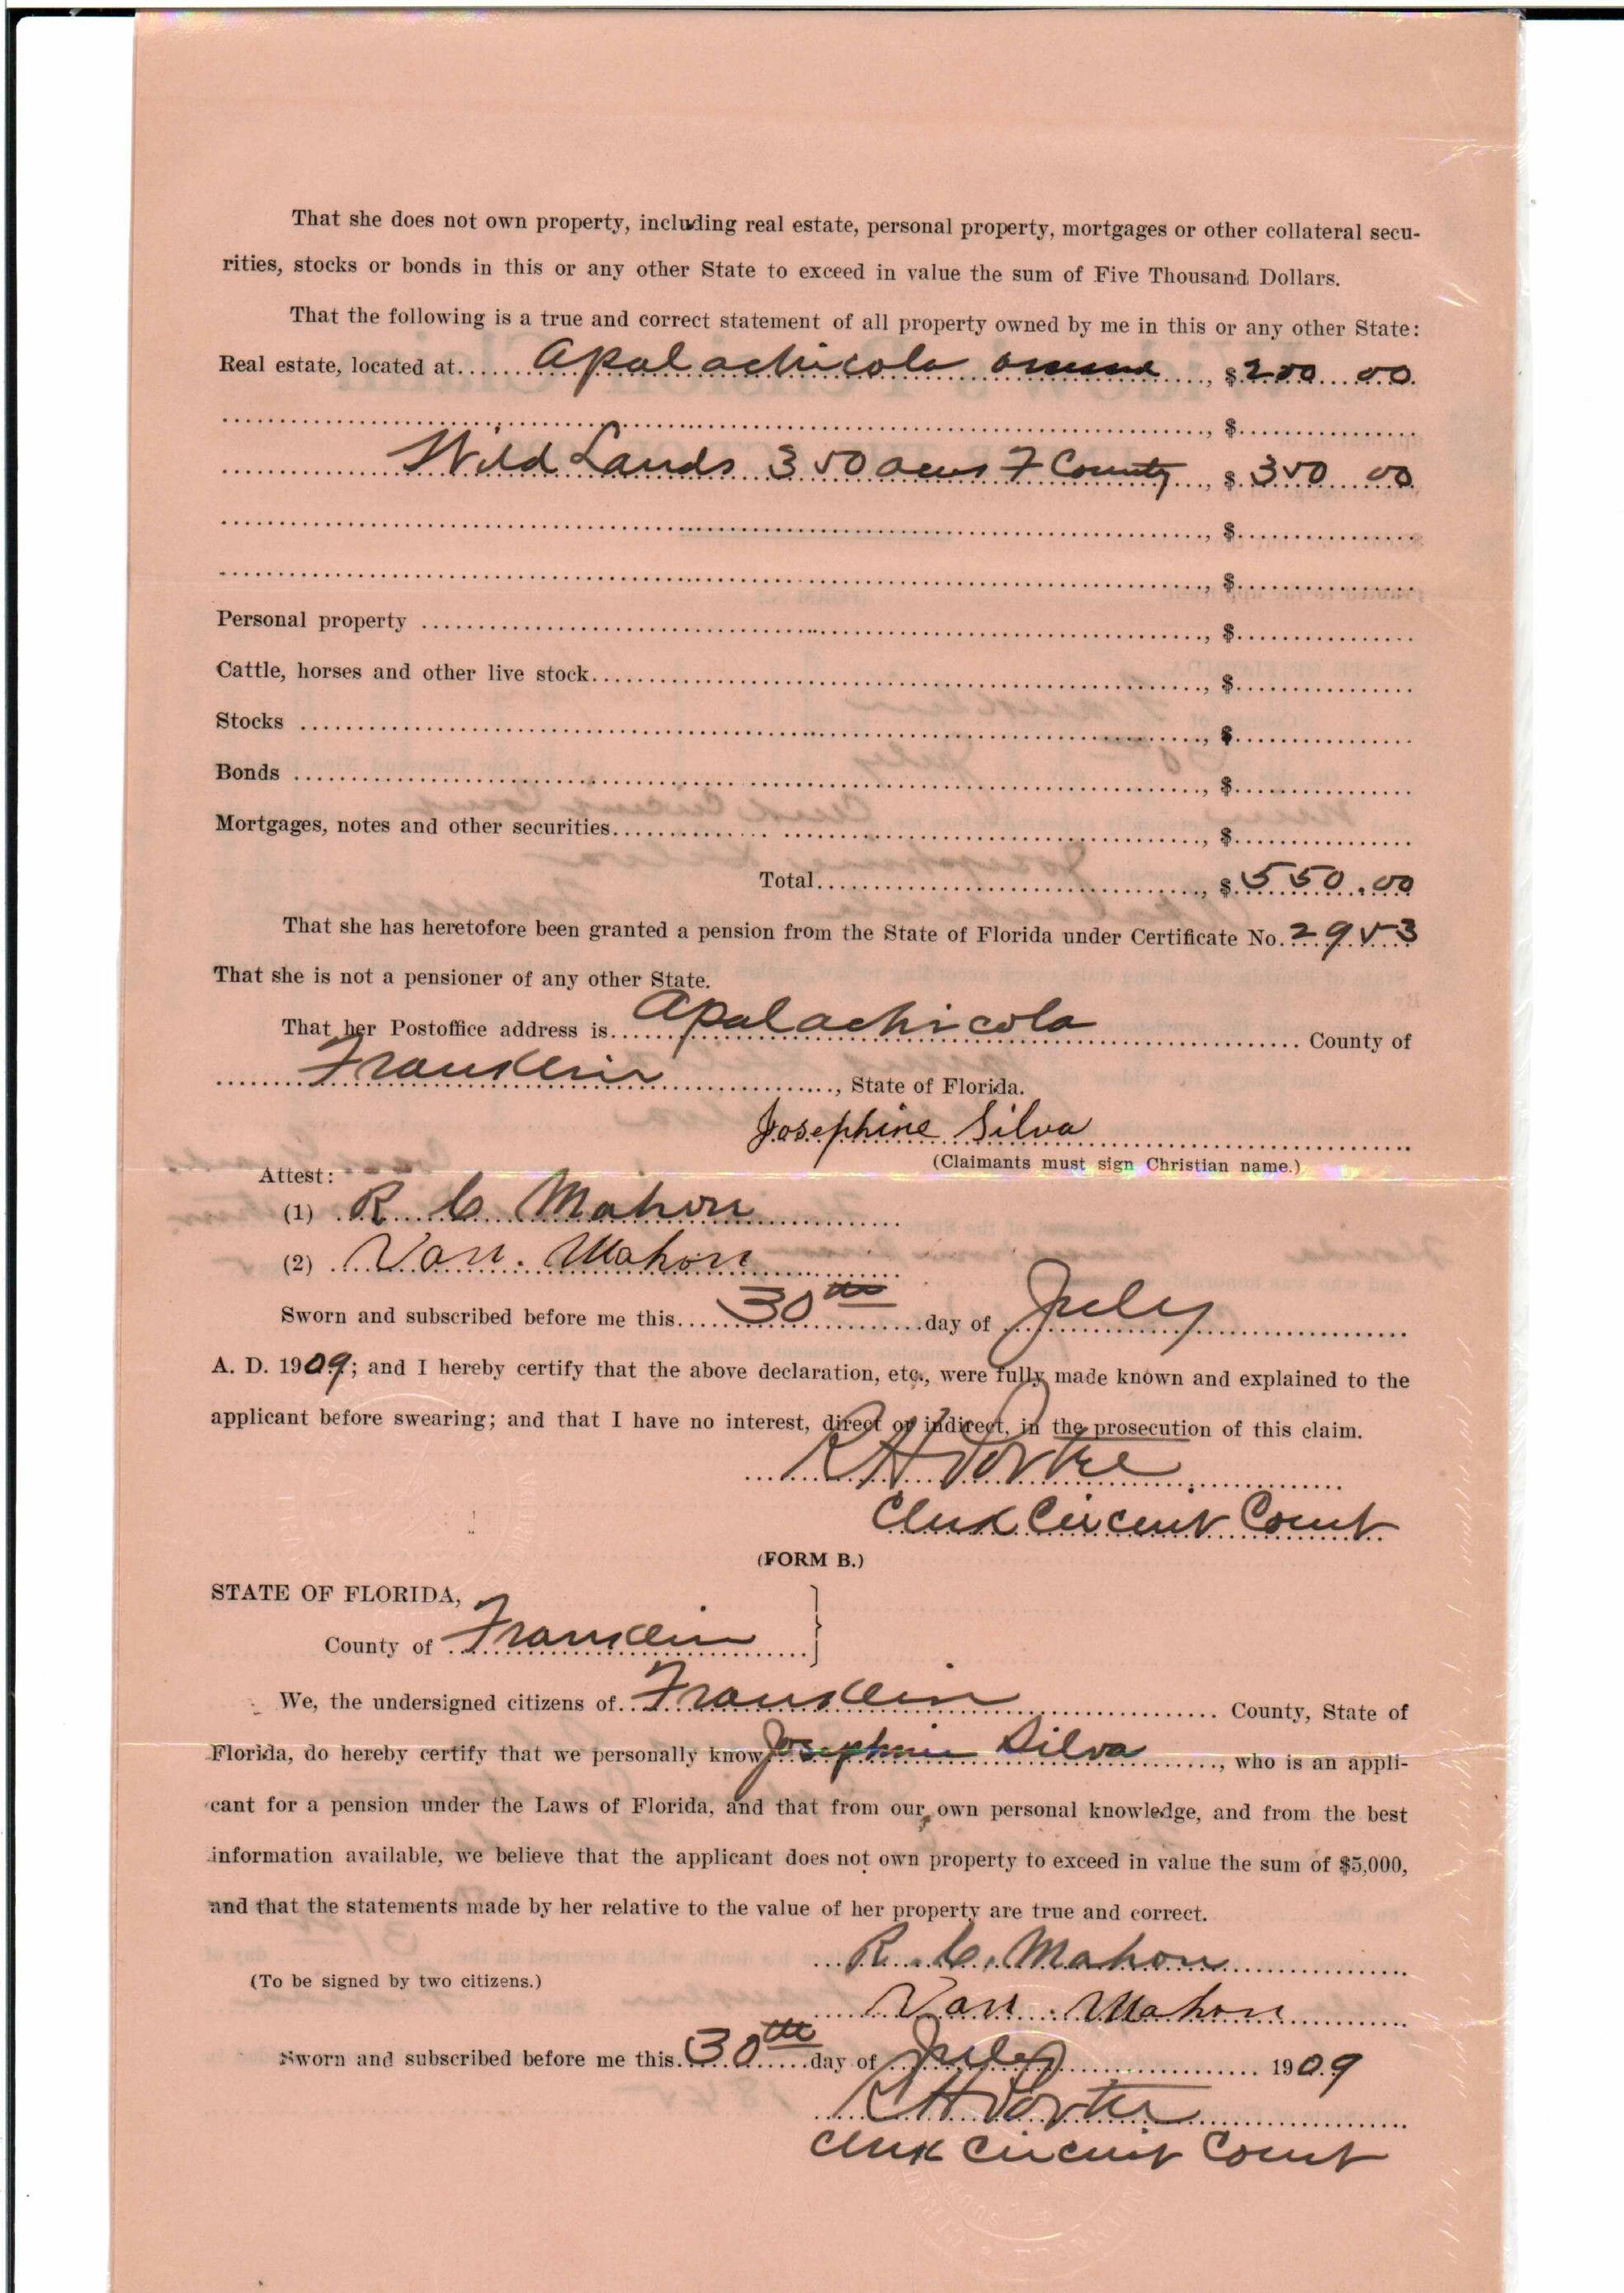 That she does not own property, including real estate, personal property, mortgages or other collateral secu-
rities, stocks or bonds in this or any other State to exceed in value the sum of Five Thousand Dollars.
That the following is a true and correct statement of all property owned by me in this or any other State:
Real estate, located at...... Apalachicola ......, $ 200 00
......, $......
Wild Lands 350 acres F County ......, $ 350 00
......, $......
......, $......
Personal property ......, $......
Cattle, horses and other live stock......, $......
Stocks ......, $......
Bonds ......, $......
Mortgages, notes and other securities......, $......
Total......, $ 550.00
That she has heretofore been granted a pension from the State of Florida under Certificate No. 2953
That she is not a pensioner of any other State.
That her Postoffice address is...... Apalachicola ...... County of
...... Franklin ......, State of Florida.
Josephine Silva
(Claimants must sign Christian name.)
Attest:
(1) R. C. Mahon
(2) Van. Mahon
Sworn and subscribed before me this...... 30th ......day of July
A. D. 1909; and I hereby certify that the above declaration, etc., were fully made known and explained to the
applicant before swearing; and that I have no interest, direct or indirect, in the prosecution of this claim.
R H Porter
Clerk Circuit Court
(FORM B.)
STATE OF FLORIDA,
County of Franklin
We, the undersigned citizens of Franklin ...... County, State of
Florida, do hereby certify that we personally know Josephine Silva ......, who is an appli-
cant for a pension under the Laws of Florida, and that from our own personal knowledge, and from the best
information available, we believe that the applicant does not own property to exceed in value the sum of $5,000,
and that the statements made by her relative to the value of her property are true and correct.
R. C. Mahon
(To be signed by two citizens.)
Van. Mahon
Sworn and subscribed before me this 30th day of July ...... 1909
R H Porter
Clerk Circuit Court